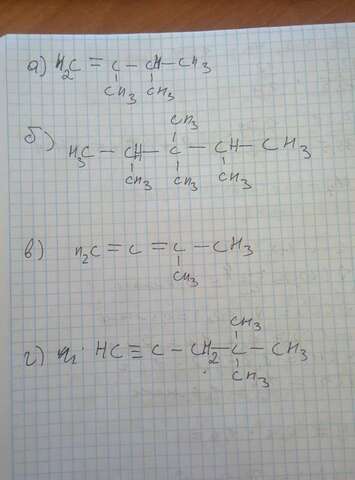 а) H2C = C – CH – CH3
CH3 CH3
б)
CH3
H3C – CH – C – CH – CH3
CH3 CH3 CH3
в) H2C = C = C – CH3
CH3
CH3
г) HC ≡ C – CH2 – C – CH3
CH3